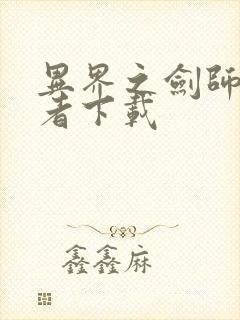 異界之劍師
者下載
鑫鑫麻